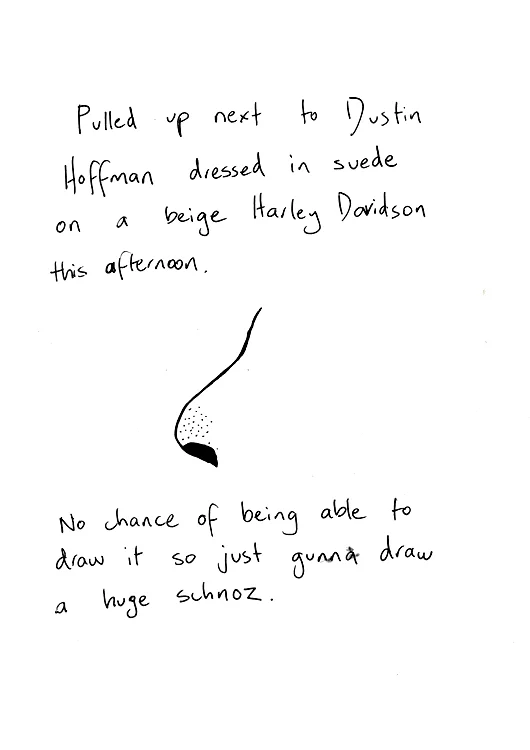 Pulled up next to Dustin
Hoffman dressed in suede
on a beige Harley Davidson
this afternoon.
No chance of being able to
draw it so just gunna draw
a huge schnoz.